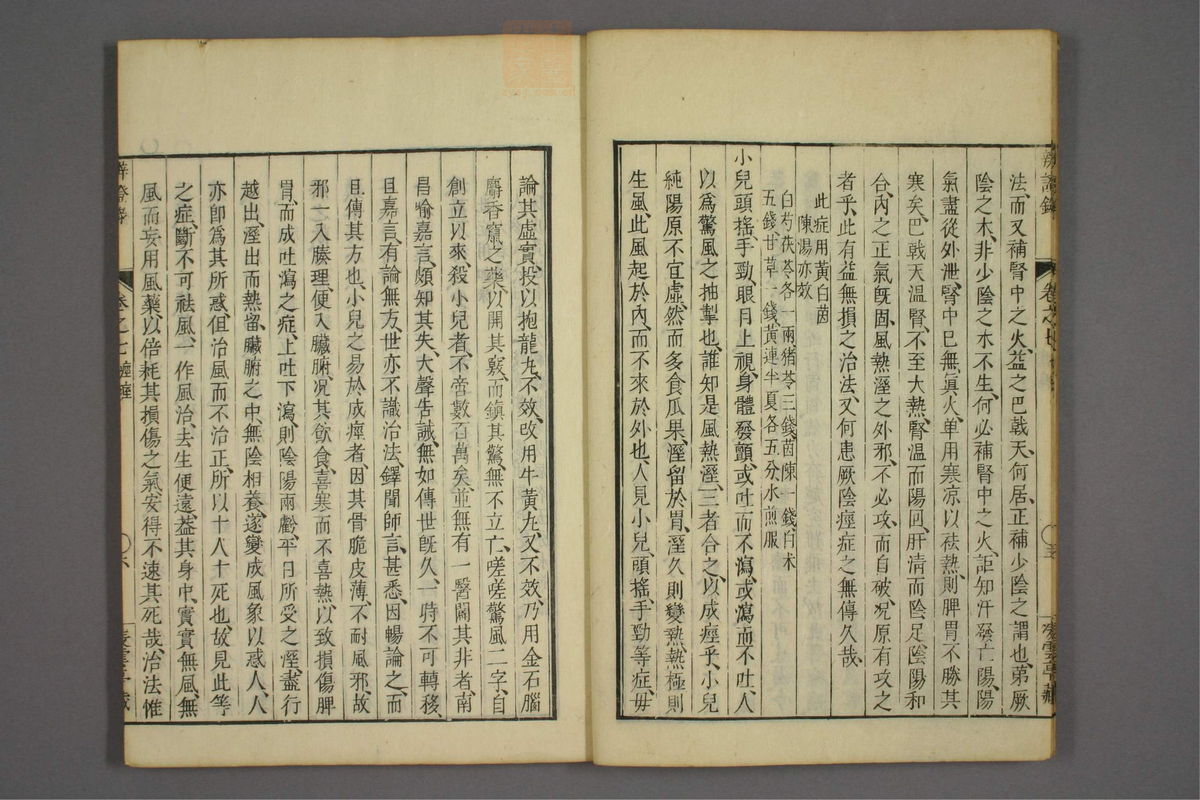 法、而又補腎中之火、益之巴戟天、何居、正補少陰之謂也、第厥
陰之木、非少陰之水不生、何必補腎中之火、詎知汗發亡陽、陽
氣盡從外泄、腎中已無眞火、单用寒凉以祛熱、則脾胃不勝其
寒矣、巴戟天温腎、不至大熱、腎温而陽囘、肝清而陰足、陰陽和
合、內之正氣旣固、風熱溼之外邪、不必攻、而自破、况原有攻之
者乎、此有益無損之治法、又何患厥陰痙症之無傳久哉、
此症用黃白茵
陳湯亦效
白芍茯苓各一兩猪苓三錢茵陳一錢白术
五錢甘草一錢黃連半夏各五分水煎服
小兒頭搖手勁、眼目上視、身體發顫、或吐而不瀉、或瀉而不吐、人
以爲驚風之抽掣也、誰知是風熱溼、三者合之、以成痙乎、小兒
純陽、原不宜虛、然而多食瓜果、溼留於胃、溼久則變熱、熱極則
生風、此風起於內、而不來於外也、人見小兒、頭搖、手勁等症、毋
論其虛實、投以抱龍丸、不效、改用牛黃丸、又不效、乃用金石腦
麝香竄之藥、以開其竅、而鎭其驚、無不立亡、嗟嗟驚風二字、自
創立以來、殺小兒者、不啻數百萬矣、並無有一醫闢其非者、南
昌喻嘉言、頗知其失、大聲告誡、無如傳世旣久、一時不可轉移、
且嘉言、有論無方、世亦不識治法、鐸聞師言、甚悉、因暢論之、而
且傳其方也、小兒之易於成痙者、因其骨脆皮薄、不耐風邪、故
邪一入腠理、便入臟腑、况其飲食、喜寒而不喜熱、以致損傷脾
胃、而成吐瀉之症、上吐下瀉、則陰陽兩虧、平日所受之溼、盡行
越出、溼出而熱留、臟腑之中、無陰相養、遂變成風象以惑人、人
亦卽爲其所惑、但治風而不治正、所以十人十死也、故見此等
之症、斷不可祛風、一作風治、去生便遠、葢其身中、實實無風、無
風而妄用風藥、以倍耗其損傷之氣、安得不速其死哉、治法惟